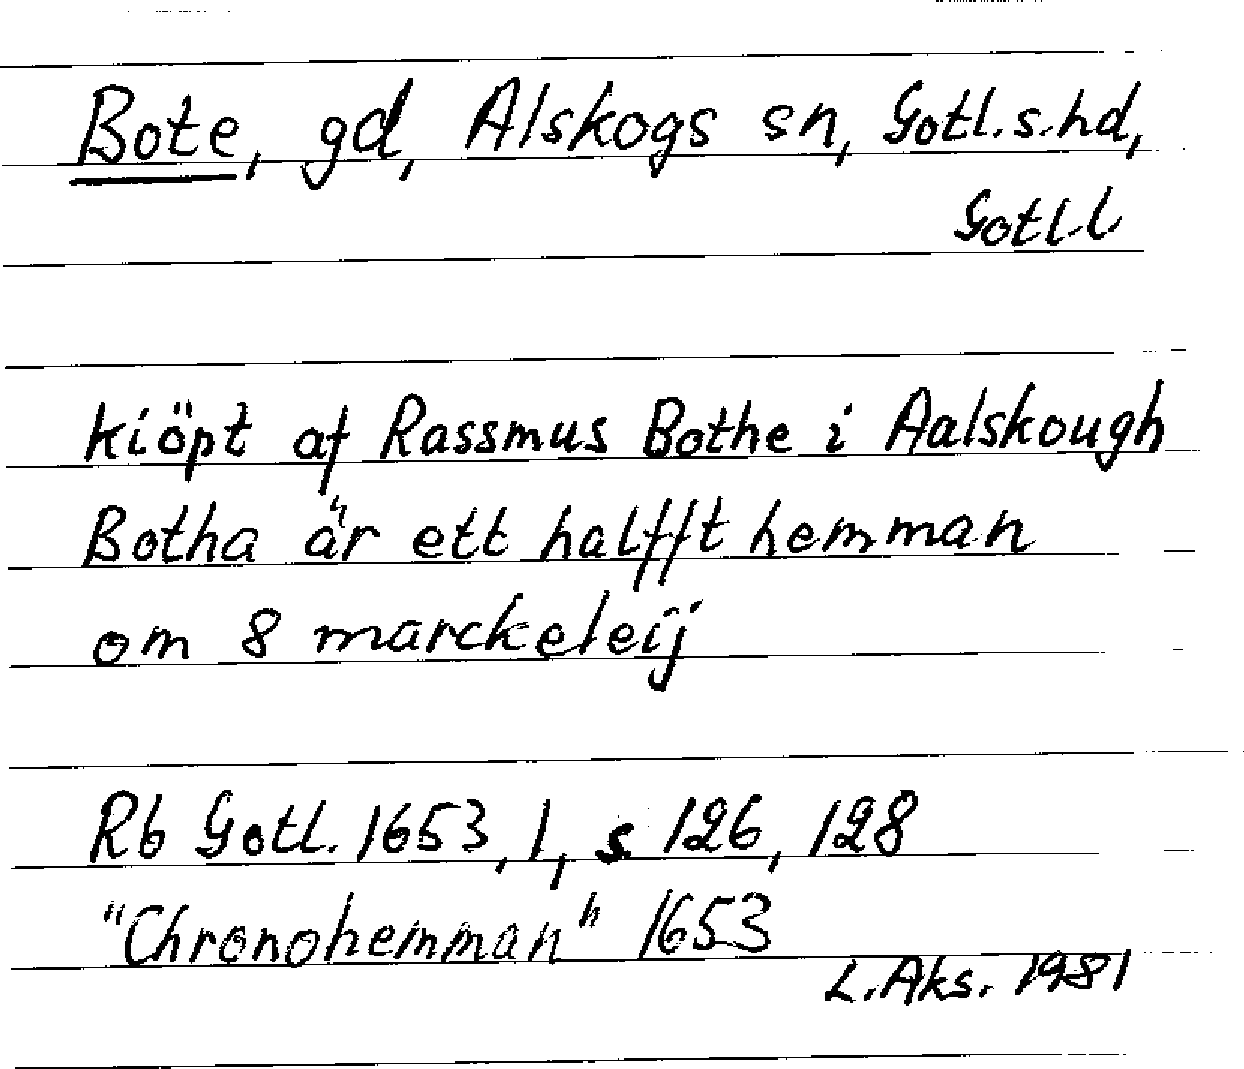 Bote, gd, Alskogs sn, Gotl.s.hd,
Gotl.l
kiöpt af Rassmus Bothe i Aalskough
Botha är ett halfft hemman
om 8 marckeleij
Rb Gotl. 1653, 1, s 126, 128
"Chronohemman" 1653
L. Aks. 1981